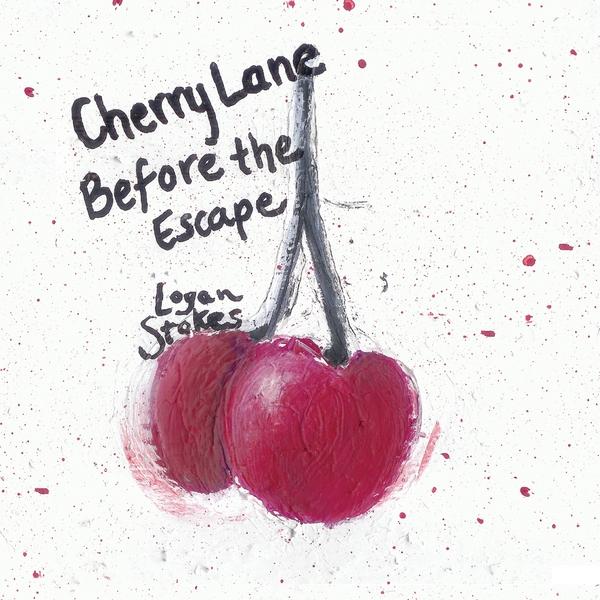 Cherry Lane
Before the
Escape
Logan
Stokes